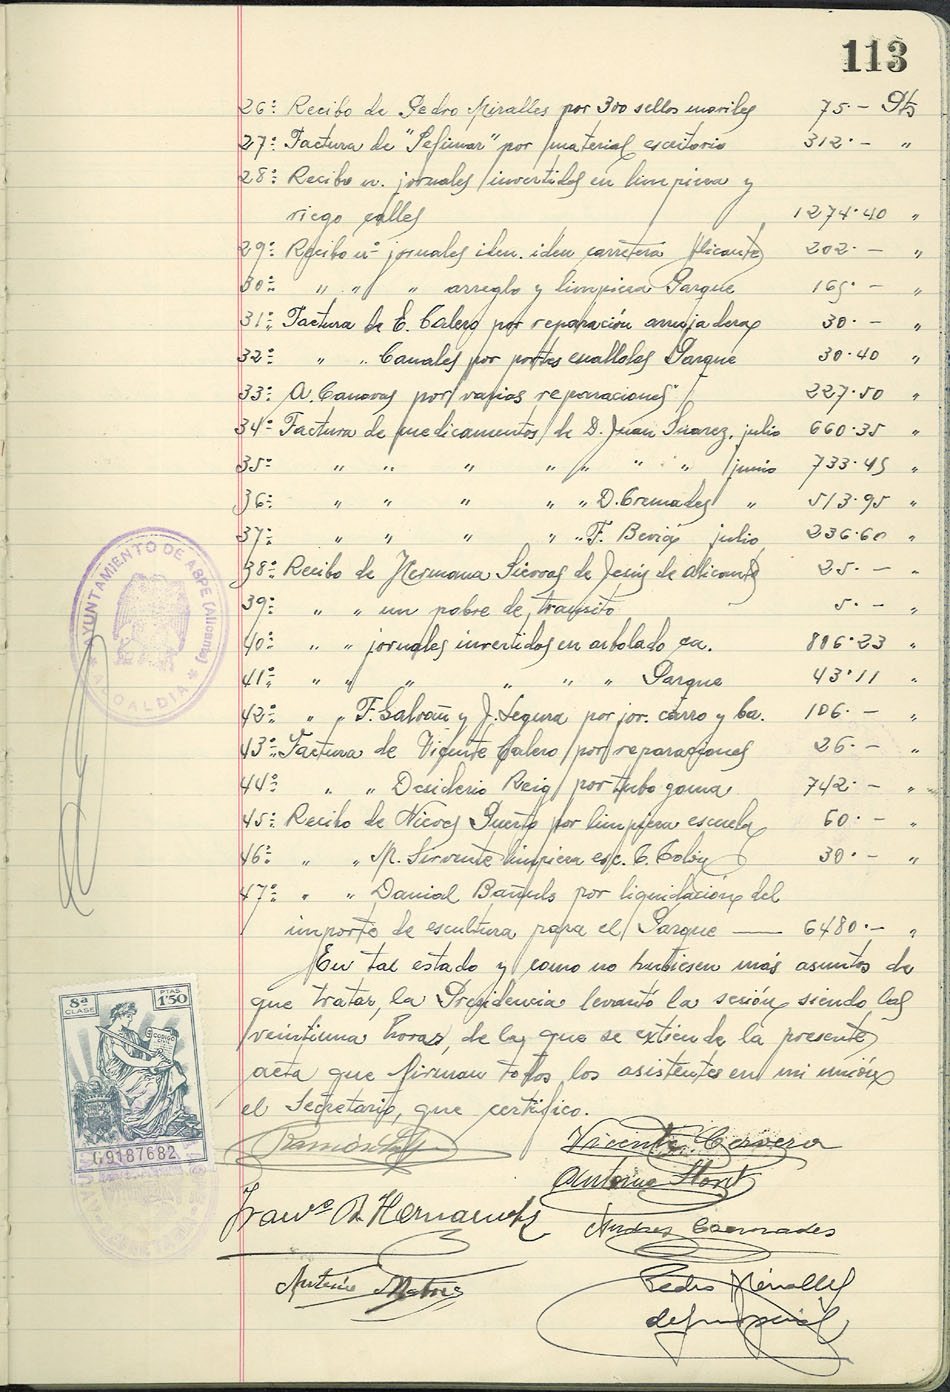 113
26º Recibo de Pedro Miralles por 300 sellos moviles 75·— Pts
27º Factura de "Sefimar" por material escritorio 312·— "
28º Recibo n. jornales invertidos en limpieza y
riego calles 1274·40 "
29º Recibo nº jornales iden. iden carretera Alicante 202·— "
30º " " " arreglo y limpieza Parque 165·— "
31º Factura de E. Calero por reparación 30·— "
32º " " Canales por portes Parque 30·40 "
33º A. Canovas por varias reparaciones 227·50 "
34º Factura de medicamentos de D. Juan Suarez, julio 660·35 "
35º " " " " " " " junio 733·45 "
36º " " " " " D. Cremades " 513·95 "
37º " " " " " F. Beviá julio 236·60 "
38º Recibo de Hermana Siervas de Jesús de Alicante 25·— "
39º " " un pobre de transito 5·— "
40º " " jornales invertidos en arbolado ca. 806·23 "
41º " " " " " " Parque 43·11 "
42º " " F. Galvañ y J. Segura por jor. carro y ca. 106·— "
43º Factura de Vicente Calero por reparaciones 26·— "
44º " " Desiderio Reig por tubo goma 742·— "
45º Recibo de Nieves Puerto por limpieza escuela 60·— "
46º " " M. Sirvente limpieza esc. C. Colón 30·— "
47º " " Danial Bañuls por liquidación del
importe de escultura para el Parque —— 6480·— "
En tal estado y como no hubiesen más asuntos de
que tratar, la Presidencia levantó la sesión siendo las
veintiuna horas, de la que se extiende la presente
acta que firman todos los asistentes en mi unión
el Secretario, que certifico.
AYUNTAMIENTO DE ASPE (Alicante)
* ALCALDIA *
8ª CLASE
PTAS. 1'50
G9187682
Vicente Cervera
Antonio
Franco A. Hernandez
Andres Cremades
Antonio Mateo
Pedro Miralles